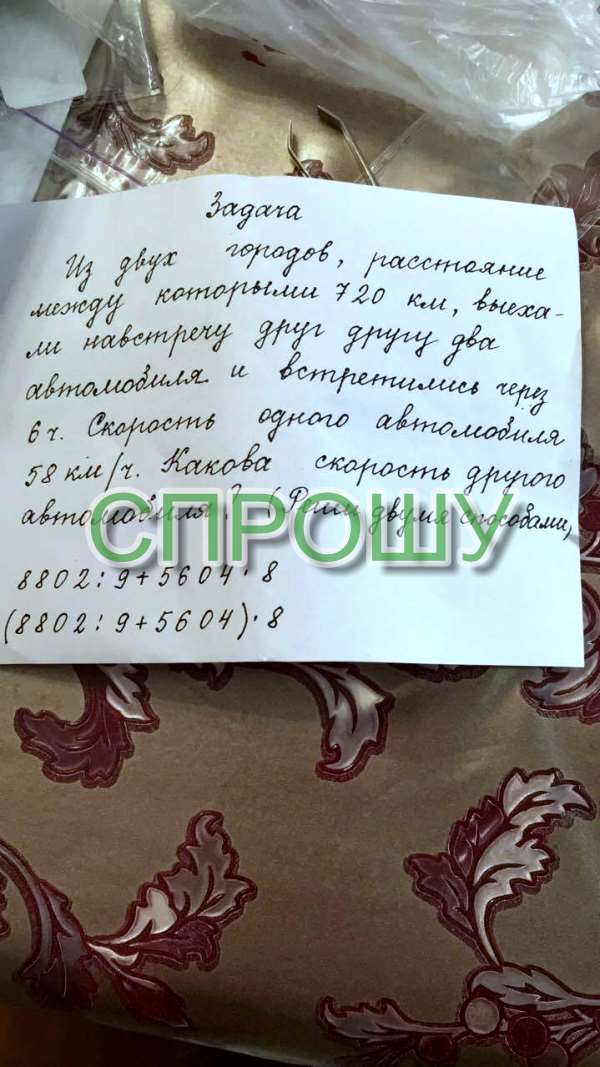 Задача
Из двух городов, расстояние
между которыми 720 км, выеха-
ли навстречу друг другу два
автомобиля и встретились через
6 ч. Скорость одного автомобиля
58 км/ч. Какова скорость другого
автомобиля? (Реши двумя способами)
СПРОШУ
8802:9+5604·8
(8802:9+5604)·8